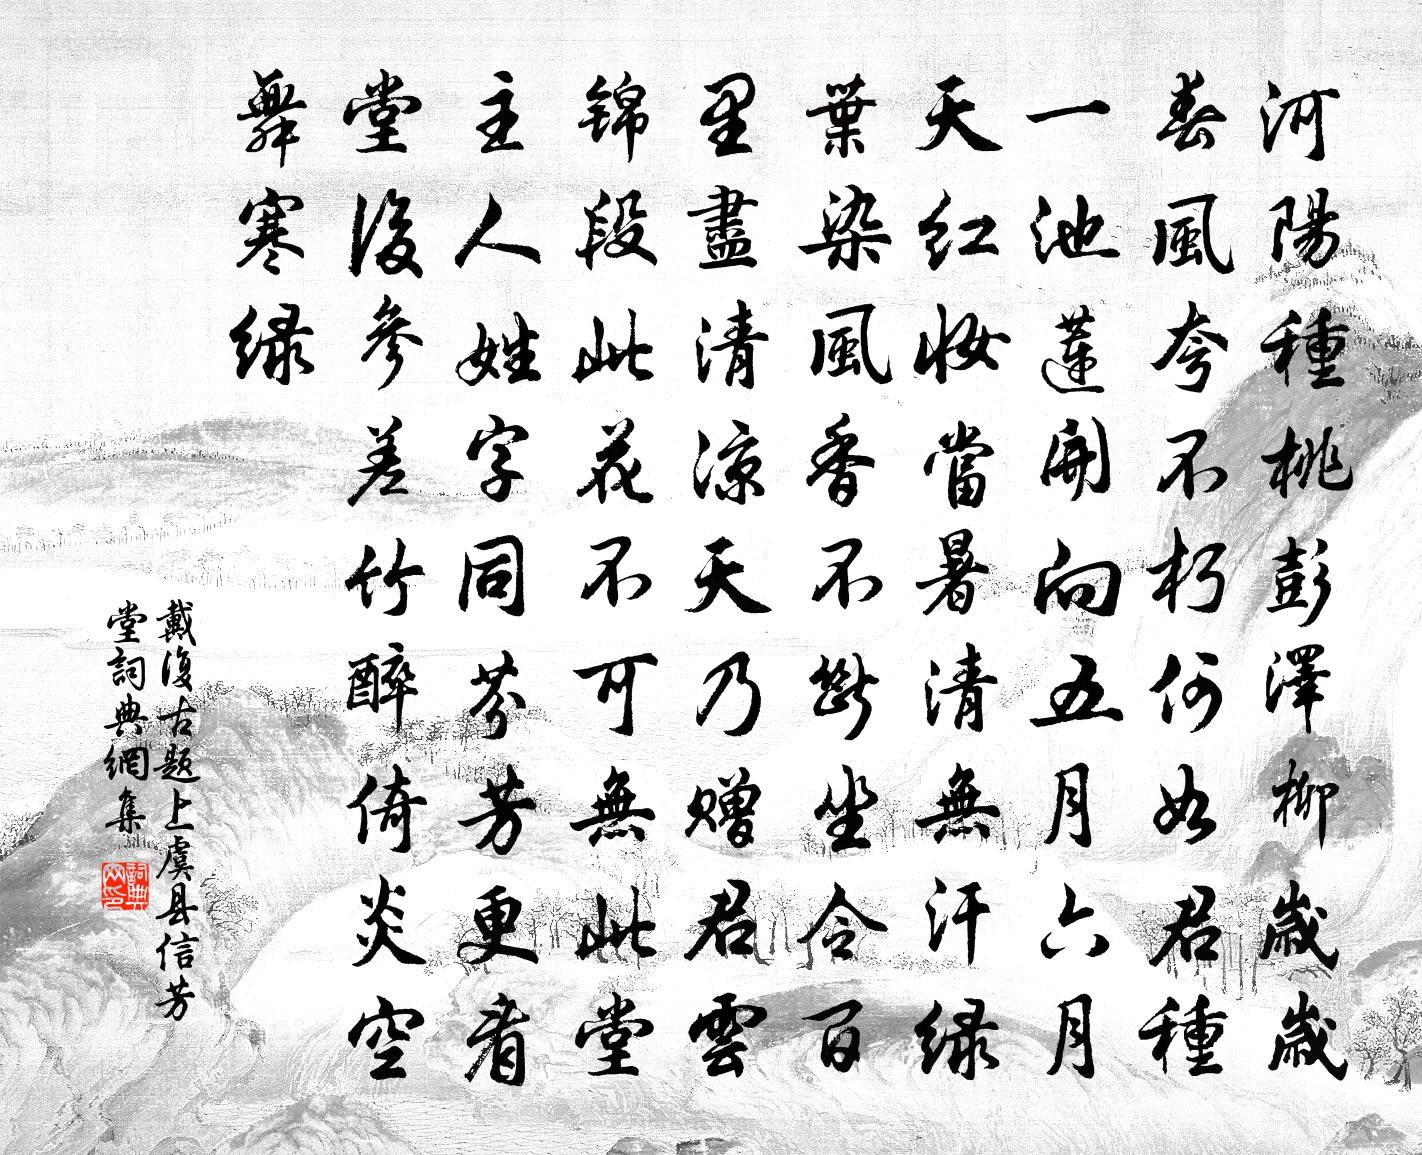 河陽種桃彭澤柳歲歲
春風夸不朽何如君種
一池蓮開向五月六月
天红妝當暑清無汗绿
葉染風香不斷坐令百
里盡清涼天乃贈君雲
锦段此花不可無此堂
主人姓字同芬芳更看
堂後參差竹醉倚炎空
舞寒绿
戴復古题上虞县信芳
堂詞典網集
詞典网印